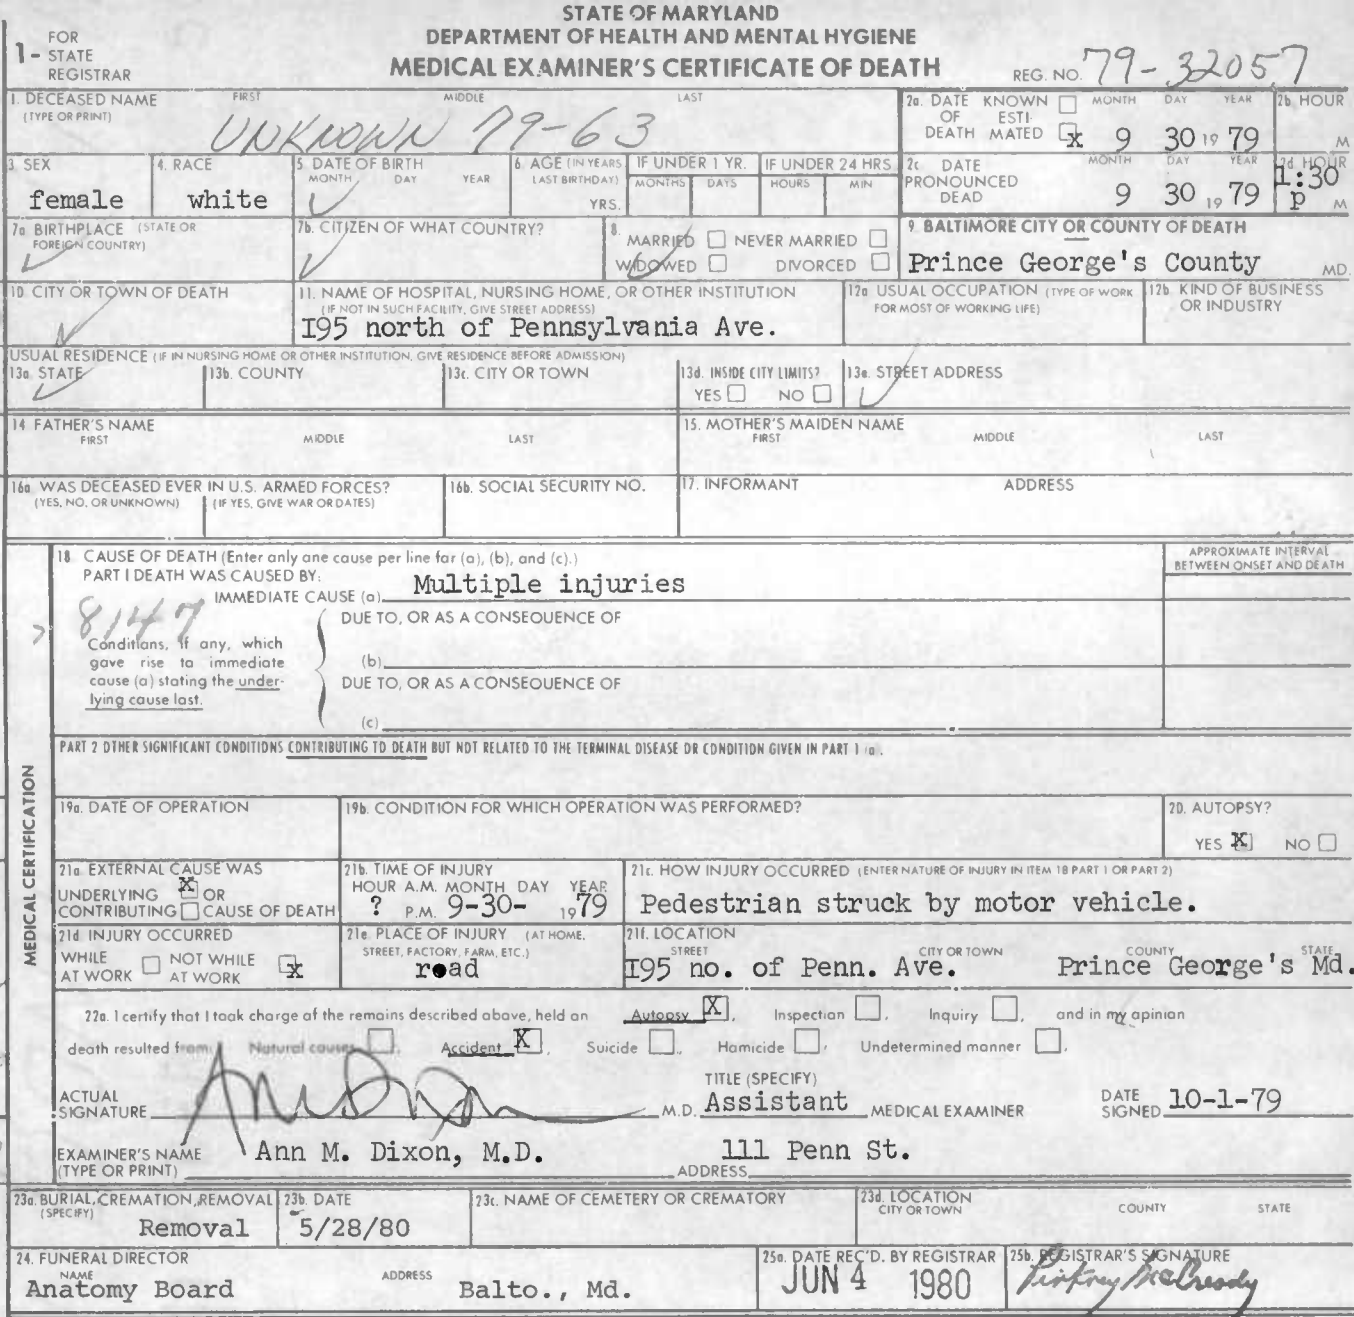 STATE OF MARYLAND
DEPARTMENT OF HEALTH AND MENTAL HYGIENE
MEDICAL EXAMINER'S CERTIFICATE OF DEATH
1- FOR STATE REGISTRAR
REG. NO. 79-32057
1. DECEASED NAME (TYPE OR PRINT) FIRST MIDDLE LAST
UNKNOWN 79-63
2a. DATE OF DEATH KNOWN ESTIMATED x MONTH DAY YEAR 9 30 19 79
2b. HOUR M
3. SEX female
4. RACE white
5. DATE OF BIRTH MONTH DAY YEAR
6. AGE (IN YEARS LAST BIRTHDAY) YRS.
IF UNDER 1 YR. MONTHS DAYS
IF UNDER 24 HRS HOURS MIN
2c DATE PRONOUNCED DEAD MONTH DAY YEAR 9 30 19 79
2d. HOUR 1:30 P M
7a. BIRTHPLACE (STATE OR FOREIGN COUNTRY)
7b. CITIZEN OF WHAT COUNTRY?
8. MARRIED NEVER MARRIED
WIDOWED DIVORCED
9. BALTIMORE CITY OR COUNTY OF DEATH
Prince George's County MD.
10. CITY OR TOWN OF DEATH
11. NAME OF HOSPITAL, NURSING HOME, OR OTHER INSTITUTION
(IF NOT IN SUCH FACILITY, GIVE STREET ADDRESS)
I95 north of Pennsylvania Ave.
12a USUAL OCCUPATION (TYPE OF WORK FOR MOST OF WORKING LIFE)
12b. KIND OF BUSINESS OR INDUSTRY
USUAL RESIDENCE (IF IN NURSING HOME OR OTHER INSTITUTION, GIVE RESIDENCE BEFORE ADMISSION)
13a. STATE
13b. COUNTY
13c. CITY OR TOWN
13d. INSIDE CITY LIMITS? YES NO
13e. STREET ADDRESS
14 FATHER'S NAME FIRST MIDDLE LAST
15. MOTHER'S MAIDEN NAME FIRST MIDDLE LAST
16a. WAS DECEASED EVER IN U.S. ARMED FORCES?
(YES, NO, OR UNKNOWN) (IF YES, GIVE WAR OR DATES)
16b. SOCIAL SECURITY NO.
17. INFORMANT ADDRESS
MEDICAL CERTIFICATION
18 CAUSE OF DEATH (Enter only one cause per line for (a), (b), and (c).)
APPROXIMATE INTERVAL BETWEEN ONSET AND DEATH
PART I DEATH WAS CAUSED BY:
IMMEDIATE CAUSE (a) Multiple injuries
8147
DUE TO, OR AS A CONSEQUENCE OF
Conditions, if any, which gave rise to immediate cause (a) stating the underlying cause last.
(b)
DUE TO, OR AS A CONSEQUENCE OF
(c)
PART 2 OTHER SIGNIFICANT CONDITIONS CONTRIBUTING TO DEATH BUT NOT RELATED TO THE TERMINAL DISEASE OR CONDITION GIVEN IN PART 1 (a).
19a. DATE OF OPERATION
19b. CONDITION FOR WHICH OPERATION WAS PERFORMED?
20. AUTOPSY? YES X NO
21a EXTERNAL CAUSE WAS
UNDERLYING X OR
CONTRIBUTING CAUSE OF DEATH
21b. TIME OF INJURY
HOUR A.M. MONTH DAY YEAR
? P.M. 9-30- 19 79
21c. HOW INJURY OCCURRED (ENTER NATURE OF INJURY IN ITEM 18 PART 1 OR PART 2)
Pedestrian struck by motor vehicle.
21d INJURY OCCURRED
WHILE AT WORK NOT WHILE AT WORK x
21e. PLACE OF INJURY (AT HOME, STREET, FACTORY, FARM, ETC.)
road
21f. LOCATION
STREET CITY OR TOWN COUNTY STATE
I95 no. of Penn. Ave. Prince George's Md.
22a. I certify that I took charge of the remains described above, held an Autopsy X, Inspection, Inquiry, and in my opinion
death resulted from: Natural causes, Accident X, Suicide, Homicide, Undetermined manner.
ACTUAL SIGNATURE M.D.
TITLE (SPECIFY) Assistant MEDICAL EXAMINER
DATE SIGNED 10-1-79
EXAMINER'S NAME (TYPE OR PRINT) Ann M. Dixon, M.D.
ADDRESS 111 Penn St.
23a. BURIAL, CREMATION, REMOVAL (SPECIFY) Removal
23b. DATE 5/28/80
23c. NAME OF CEMETERY OR CREMATORY
23d. LOCATION CITY OR TOWN COUNTY STATE
24. FUNERAL DIRECTOR
NAME ADDRESS
Anatomy Board Balto., Md.
25a. DATE REC'D. BY REGISTRAR JUN 4 1980
25b. REGISTRAR'S SIGNATURE